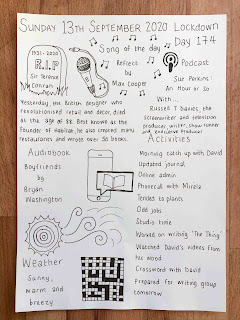 SUNDAY 13TH SEPTEMBER 2020 Lockdown
Day 174
1931-2020
R.I.P
Sir Terence
Conran
Song of the day
Reflect
by
Max Cooper
Podcast
Sue Perkins:
An Hour or So
With...
Russell T Davies, the
Screenwriter and television
producer writer, show runner
and executive producer
Yesterday the British designer who
revolutionised retail and decor, died
at the age of 88. Best known as the
Founder of Habitat, he also created many
restaurants and wrote over 50 books.
Audiobook
Boyfriends
by
Bryan
Washington
Activities
Morning catch up with David
Updated journal
Online admin
Phonecall with
Tended to plants
Odd jobs
Studio time
Worked on writing 'The Thing'
Watched David's videos from
his
Crossword with David
Prepared for writing group
tomorrow
Weather
Sunny,
warm and
breezy